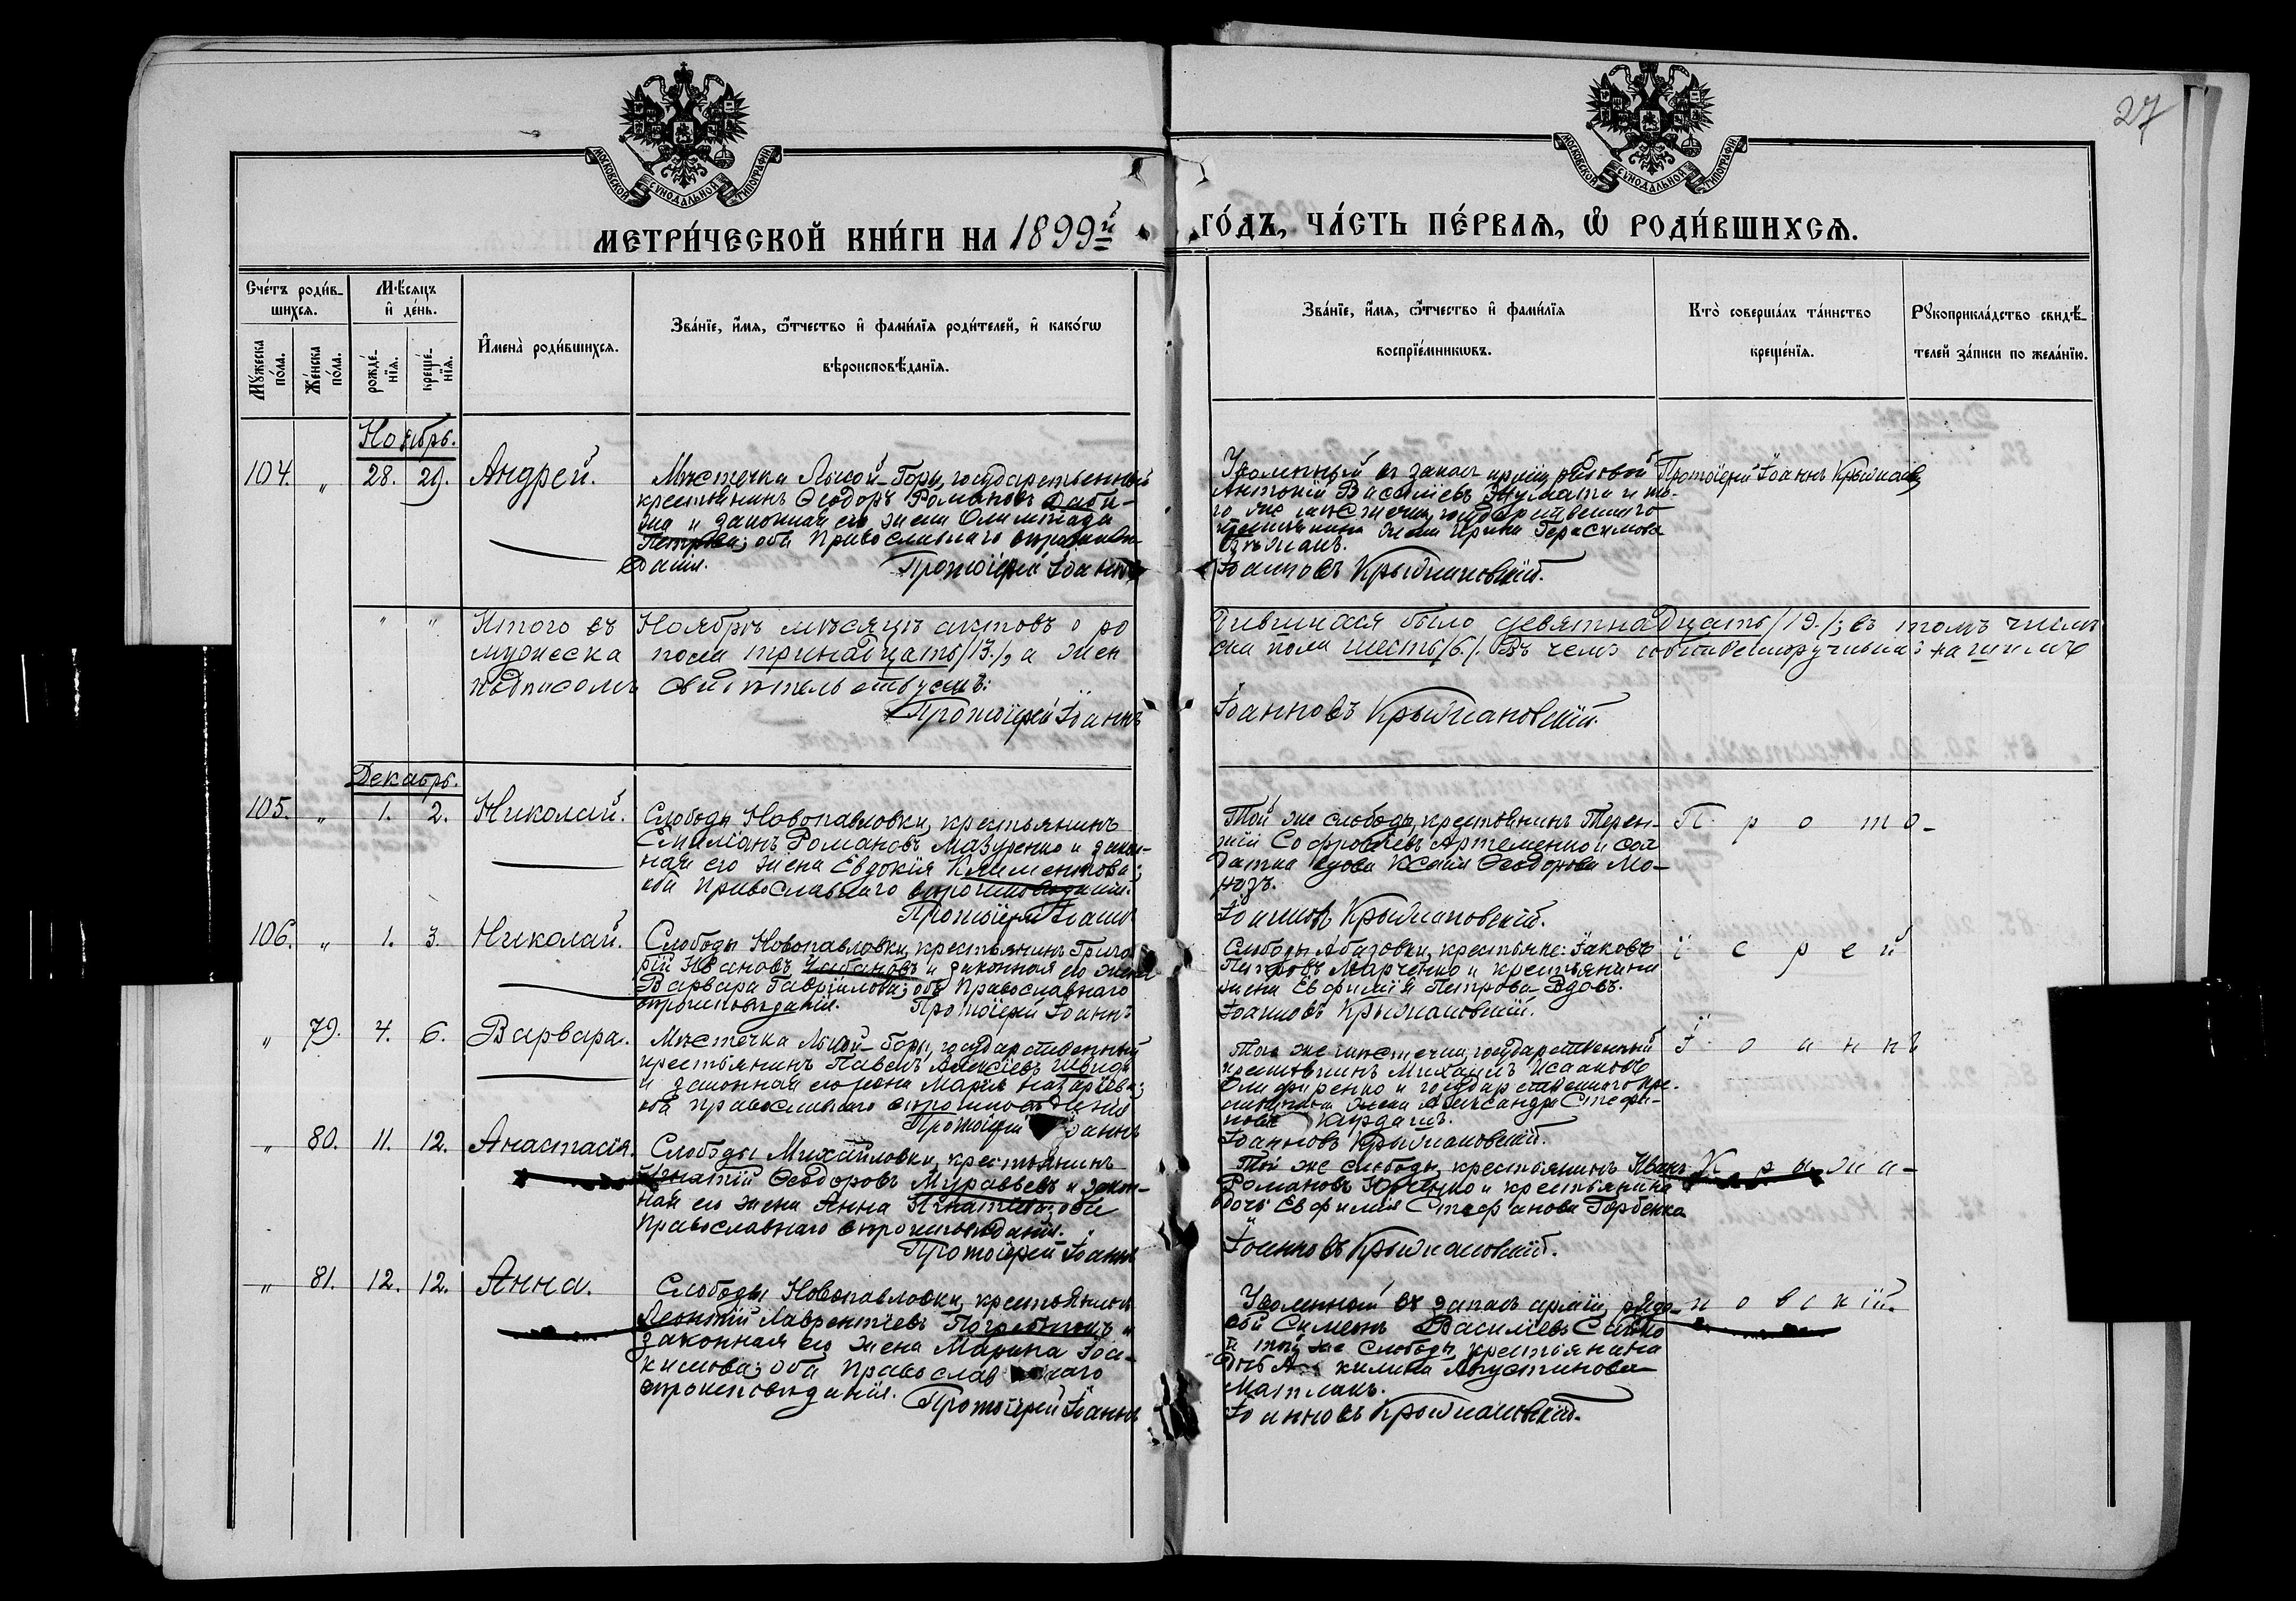 27
МОСКОВСКОЙ СѴНОДАЛЬНОЙ ТИПОГРАФІИ.
МОСКОВСКОЙ СѴНОДАЛЬНОЙ ТИПОГРАФІИ.
МЕТРИ́ЧЕСКОЙ КНИ́ГИ НА 1899й ГО́ДЪ, ЧА́СТЬ ПЕ́РВАЯ, Ѡ РОДИ́ВШИХСЯ.
Сче́тъ роди́в-
шихся.
Мѣ́сяцъ
и де́нь.
Мꙋ́жеска по́ла.
Же́нска по́ла.
рожде́-
нія.
креще́-
нія.
Имена̀ роди́вшихся.
Зва́ніе, и́мя, ѻ́тчество и фами́лія роди́телей, и како́гѡ
вѣроисповѣ́данія.
Зва́ніе, и́мя, ѻ́тчество и фами́лія
воспріе́мникѡвъ.
Кто̀ соверша́лъ та́инство
креще́нія.
Рꙋкоприкла́дство свидѣ́-
телей за́писи по жела́нію.
Ноябрь.
104. " 28. 29. Андрей.
Мѣстечка Лысой-Горы, государственный
крестьянинъ Ѳеодоръ Романовъ Даби-
жа и законная его жена Олимпіада
Петрова; оба Православнаго вѣроисповѣ-
данія. Протоіерей Іоаннъ
Уволенный въ запасъ арміи рядовой
Антоній Васильевъ и то-
го же мѣстечка, государственнаго
крестьянина жена Ирина Герасимова
Іоанновъ Крыжановскій.
Протоіерей Іоаннъ Крыжановскій
" " Итого въ Ноябрѣ мѣсяцѣ актовъ о ро
дившихся было девятнадцать /19./; въ томъ числѣ
мужеска пола тринадцать /13./, а жен
ска пола шесть /6./. Въ чемъ собственноручнымъ нашимъ
подписомъ свидѣтельствуемъ:
Протоіерей Іоаннъ
Іоанновъ Крыжановскій.
Декабрь.
105. " 1. 2. Николай.
Слободы Новопавловки, крестьянинъ
Емиліанъ Романовъ Мазуренко и закон-
ная его жена Евдокія Климентова;
оба Православнаго вѣроисповѣданія.
Протоіерей Іоаннъ
Той же слободы, крестьянинъ Терен-
тій Софроніевъ Артеменко и сол
датка вдова Ксенія Ѳеодорова Мо-
розъ.
Іоанновъ Крыжановскій.
П р о т о-
106. " 1. 3. Николай.
Слободы Новопавловки, крестьянинъ Григо
рій Ивановъ Чабановъ и законная его жена
Варвара Гавріилова; оба Православнаго
вѣроисповѣданія. Протоіерей Іоаннъ
Слободы Абазовки, крестьяне: Іаковъ
Петровъ Марченко и крестьянина
жена Евфимія Петрова Вдовъ.
Іоанновъ Крыжановскій.
і е р е й
" 79. 4. 6. Варвара.
Мѣстечка Лысой-Горы, государственный
крестьянинъ Павелъ Алексіевъ Швидя
и законная его жена Марія Назаріева;
оба православнаго вѣроисповѣданія
Протоіерей Іоаннъ
Того же мѣстечка, государственный
крестьянинъ Михаилъ Исааковъ
Олифиренко и государственнаго кре-
стьянина жена Александра Стефа-
нова Кардашъ.
Іоанновъ Крыжановскій.
І о а н н ъ
" 80. 11. 12. Анастасія.
Слободы Михайловки, крестьянинъ
Игнатій Ѳеодоровъ Муравьевъ и закон-
ная его жена Анна Игнатіева; оба
Православнаго вѣроисповѣданія.
Протоіерей Іоаннъ
Той же слободы, крестьянинъ Иванъ
Романовъ Юрченко и крестьянина
дочь Евфимія Стефанова Горбенко
Іоанновъ Крыжановскій.
К р ы ж а-
" 81. 12. 12. Анна.
Слободы Новопавловки, крестьянинъ
Леонтій Лаврентіевъ Погребнякъ и
законная его жена Марина Іоа-
кимова; оба Православнаго
вѣроисповѣданія. Протоіерей Іоаннъ
Уволенный въ запасъ арміи, рядо-
вой Симеонъ Василіевъ Сайко
и той же Слободы, крестьянина
дочь Акилина Августинова
Матлакъ.
Іоанновъ Крыжановскій.
н о в с к і й.